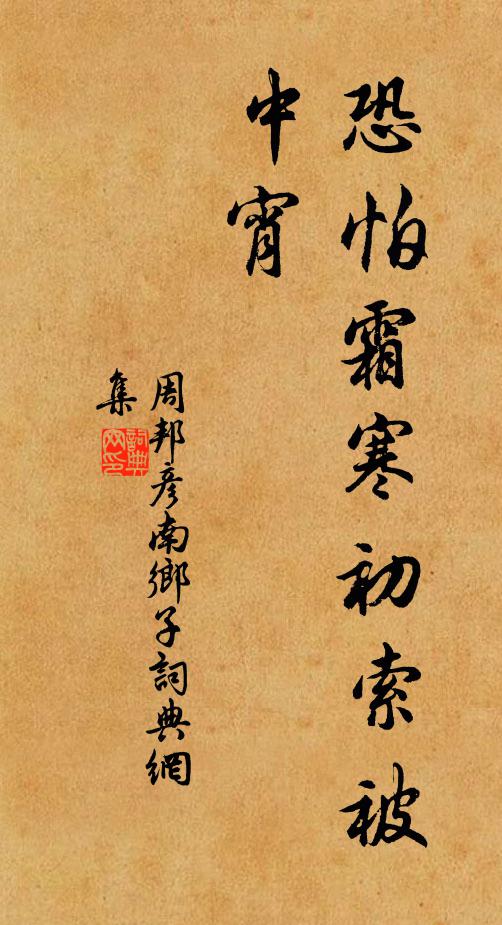 恐怕霜寒初索被
中宵
周邦彦南鄉子詞典網
集
詞典網印